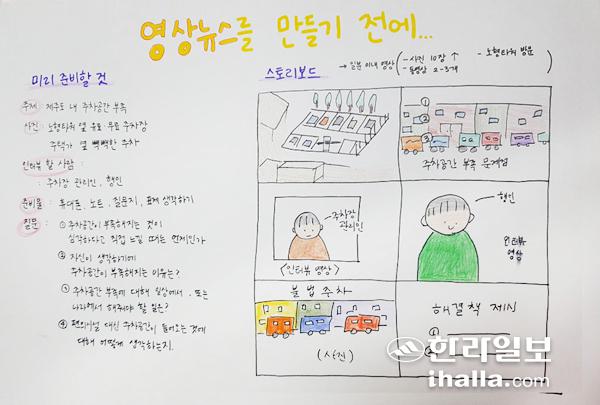 영상뉴스를 만들기 전에...
미리 준비할 것
주제 : 제주도 내 주차공간 부족
사진 : 노형타워 옆 유료·무료 주차장
주택가 옆 빽빽한 주차
인터뷰 할 사람 :
: 주차장 관리인, 행인
준비물 : 휴대폰, 노트, 질문지, 표제 생각하기
질문 : ① 주차공간이 부족해지는 것이
심각하다고 직접 느낄 때는 언제인가
② 자신이 생각하기에
주차공간이 부족해지는 이유는?
③ 주차공간 부족에 대해 일상에서, 또는
나라에서 해주어야 할 일은?
④ 편의시설 대신 주차공간이 들어오는 것에
대해 어떻게 생각하는지.
스토리보드
→ 일분 이내 영상
- 사진 10장 ↑
- 동영상 2-3개
- 노형타워 방문
① ② ③
주차공간 부족 문제점
주차장
관리인
<인터뷰 영상>
행인
인터뷰
영상
불법주차
(사진)
해결책 제시
①
②
한라일보
ihalla.com